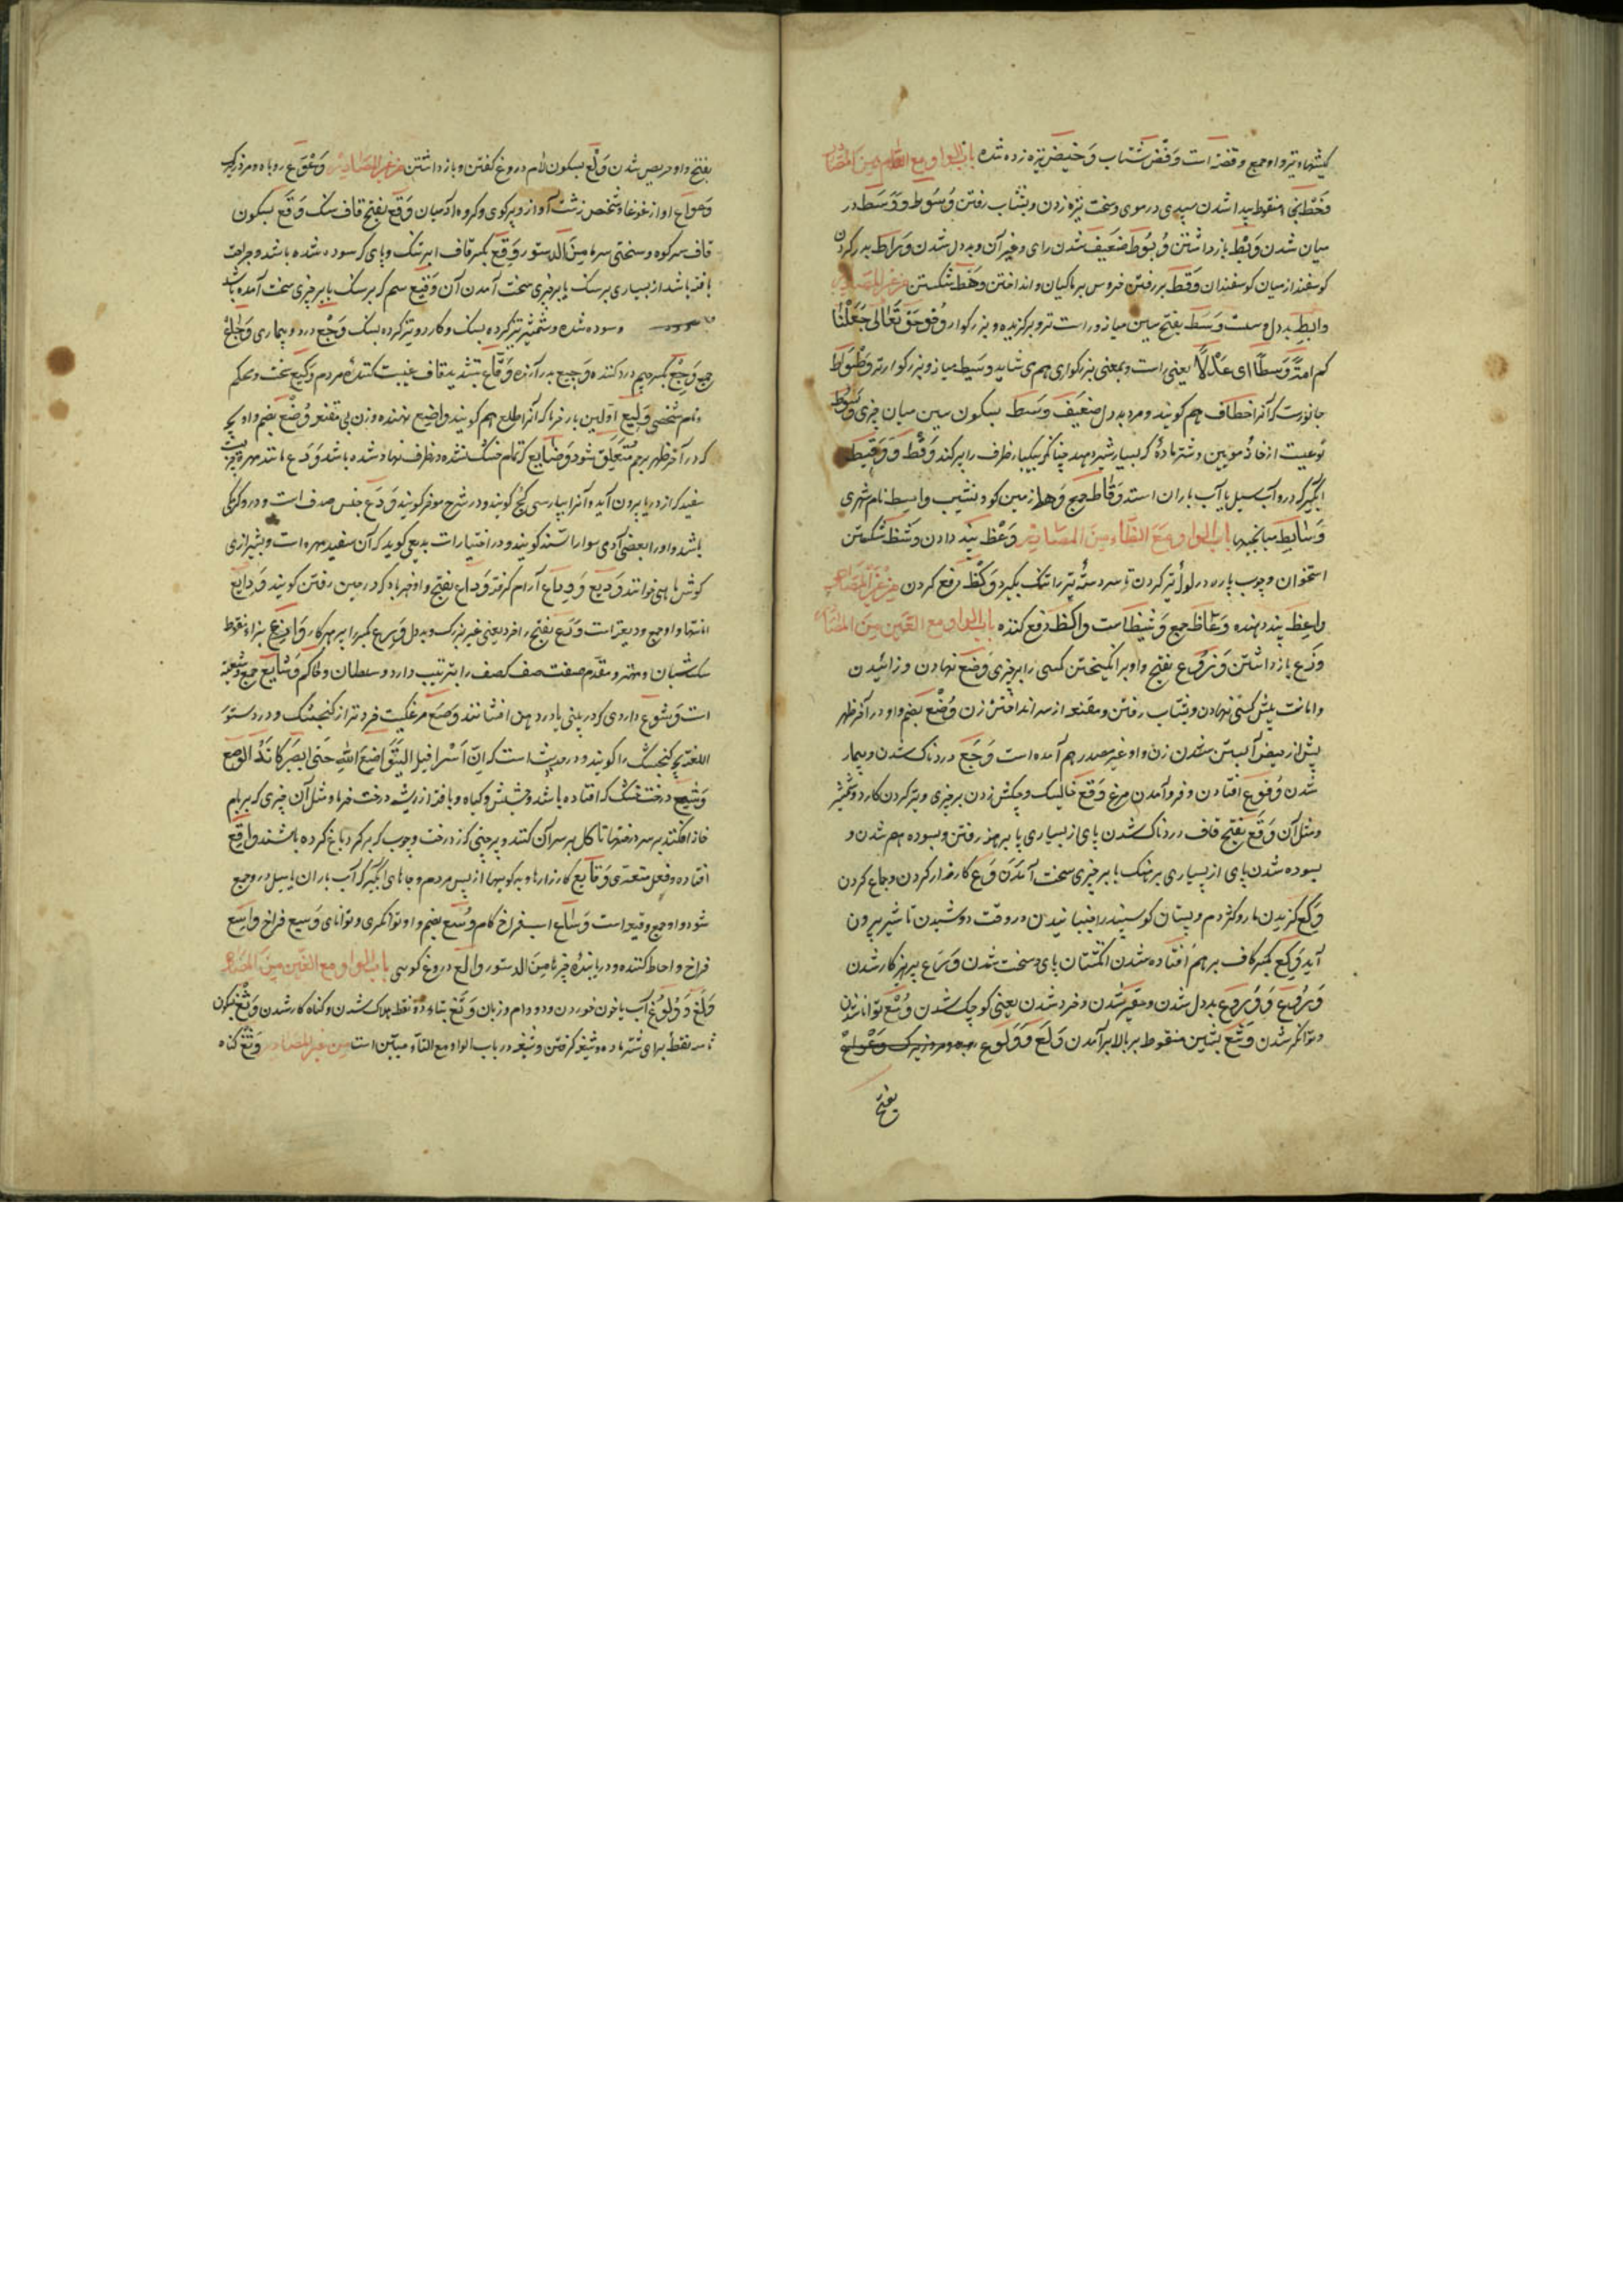 کیشهاء تیر واو جمع وفضه است وَفض شتاب وَخیض نیزه زده شده باب الواو مع الطاء من المصادر
وَخط بخاء منقوط پیدا شدن سپیدی در موی و سخت نیزه زدن و بشتاب رفتن وُسُوط و وَسَط در
میان شدن وَبْط بازداشتن وُبُوط ضعیف شدن رای و غیر آن و بددل شدن وَراط بدر کردن
کوسفند از میان کوسفندان وَقط بر رفتن خروس بر ماکیان و انداختن وَهط شکستن من غیر المصادر
وابط بددل و سست وَسَط بفتح سین میانه و راست تر و برگزیده و بزرگوار و قوله تعالی جَعَلْنَا
کم امة وَسَطًا ای عَدْلًا یعنی راست و بمعنی بزرگواری هم می شاید وسیط میانه و بزرگوارتر وَطْوَاط
جانوریست که آنرا خطاف هم گویند و مرد بددل ضعیف وَسْط بسکون سین میان چیزی وَسُوط
نوعیست از خانهٔ مویین و شتر مادهٔ که بسیار شیر دهد چنانکه بیکبار ظرف را پر کند وَقْط وَ وَقِیط
آبگیر که درو آب سیل یا آب باران استد وَقَاط جمع وَهط زمین کو و نشیب واسط نام شهری
وَسَائِط میانجیها باب الواو مع الظاء من المصادر وَعْظ پند دادن وَشْظ شکستن
استخوان و چوب پاره در لول تبر کردن تا سر دستهٔ تبر را تنک بگیرد وَکْظ دفع کردن من غیر المصادر
واعظ پند دهنده وُعّاظ جمع وَشِیظ است واکظ دفع کننده باب الواو مع العین من المصادر
وَزَع بازداشتن وَزُوع بفتح واو برانگیختن کسی را بر چیزی وَضْع نهادن و زائیدن
و امانت پیش کسی نهادن و بشتاب رفتن و مقنعه از سر انداختن زن وُضْع بضم واو در آخر طهر
پیش از حیض آبستن شدن زن و او غیر مصدر هم آمده است وَجَع دردناک شدن و بیمار
شدن وُقوع افتادن و فرو آمدن مرغ وَقع خالیسک و چکش زدن بر چیزی و تیز کردن کارد و شمشیر
و مثل آن وَقَع بفتح قاف دردناک شدن پای از بسیاری پا برهنه رفتن و بسوده هم شدن و
بسوده شدن پای از بسیاری بر سنگ یا بر چیزی سخت آمدن وَقاع کارزار کردن و جماع کردن
وَکْع گزیدن مار و کژدم و پستان کوسپند را جنبانیدن در وقت دوشیدن تا شیر بیرون
آید وَکَع بکسر کاف بر هم افتاده شدن انگشتان پای و سخت شدن وَرَع پرهیزکار شدن
وَرُوع وَ وُرُوع بددل شدن و حقیر شدن و خرد شدن یعنی کوچک شدن وُسْع توانا شدن
و توانگر شدن وَشع بشین منقوط بر بالا بر آمدن وَلَع وَ وَلُوع
بفتح
بفتح واو حریص شدن وَلْع بسکون لام دروغ گفتن و بازداشتن من غیر المصادر وَعْوَع روباه و مرد زیرک
وَعواع آواز غوغا و شخص زشت آواز و پرگوی و گروه آدمیان وَقَع بفتح قاف سنگ وَقْع بسکون
قاف سر کوه و سختی سرما من الدستور وَقِع بکسر قاف ابر تنک و پای که سوده شده باشد و جراحت
یافته باشد از بسیاری بر سنگ یا بر چیزی سخت آمدن آن وَقیع سم که بر سنگ یا بر چیزی سخت آمده باشد
و سوده شده و شمشیر تیز کرده بسنگ و کارد و تیز کرده بسنگ وَجَع درد و بیماری وَجاع
جمع وَجِع بکسر جیم درد کننده وَجیع بدرد آرنده وَقّاع بتشدید قاف غیبت کننده مردم وَکیع سخت و محکم
و نام شخصی وَلیع اولین بار خرما که آنرا طلع هم گویند واضع نهنده و زن بی مقنعه وُضْع بضم واو بچه
که در آخر طهر برحم متعلق شود وَضایع که تمام خشک نشده در ظرف نهاده شده باشد وَدَع مانند مهره چیزیست
سفید که از دریا بیرون آید و آنرا بپارسی کچ گویند و در شرح موفر گویند وَدَع جنس صدف است و درو کرمکی
باشد و اورا بعضی آدمی سوارا سند گویند و در اختیارات بدیعی گوید که آن سفید مهره است و بشیرازی
کوش ماهی خوانند وَدیع وَ وِداع آرام گرفته وَداع بفتح واو خیرباد که در حین رفتن گویند وَدایع
امانتها واو جمع ودیعه است وَرَع بفتح را خرد یعنی غیر بزرگ و بددل وَرِع بکسر را پرهیزکار وازع بزاء منقوط
سگ شبان و مهتر و مقدم صفت صف که صف را بترتیب دارد و سلطان و حاکم وَشایع جمع وشیعه
است وَشوع داروی که در بینی یا در دهن افشانند وَصَع مرغکیست خردتر از کنجشک و در دستور
اللغة بچهٔ کنجشک را گویند و در حدیث است که اِنّ اسرافیل لیتواضع الله حتی یصیر کانه الوصع
وَشیع درخت خشک که افتاده باشد و حشیش و کیاه و بافته از ریشه درخت خرما و مثل آن چیزی که بر بام
خانه افکنند بر سر درختها تا کل بر سر آن کنند و پرچینی که از درخت و چوب که بر گرد باغ کرده باشند واقع
افتاده و فعل متعدی وَقایع کارزارها و بدکوییها از پس مردم و جاهای آبگیر که آب باران یا سیل در و جمع
شود واو جمع وقیعه است وَساع اسب فراخ کام وُسْع بضم واو توانگری و توانای وَسیع فراخ واسع
فراخ و احاطه کننده و دریابندهٔ چیزها من الدستور والع دروغ گوی باب الواو مع الغین من المصادر
وَلْغ وَ وُلُوغ آب یا خون خوردن دد و دام و زبان وَتَغ بتاء دو نقطه هلاک شدن و گناه کار شدن وَثْغ بسکون
ثاء سه نقطه برای شتر ماده و ثیغه گرفتن و ثیغه در باب الواو مع التاء مبین است من غیر المصادر وَتَغ گناه